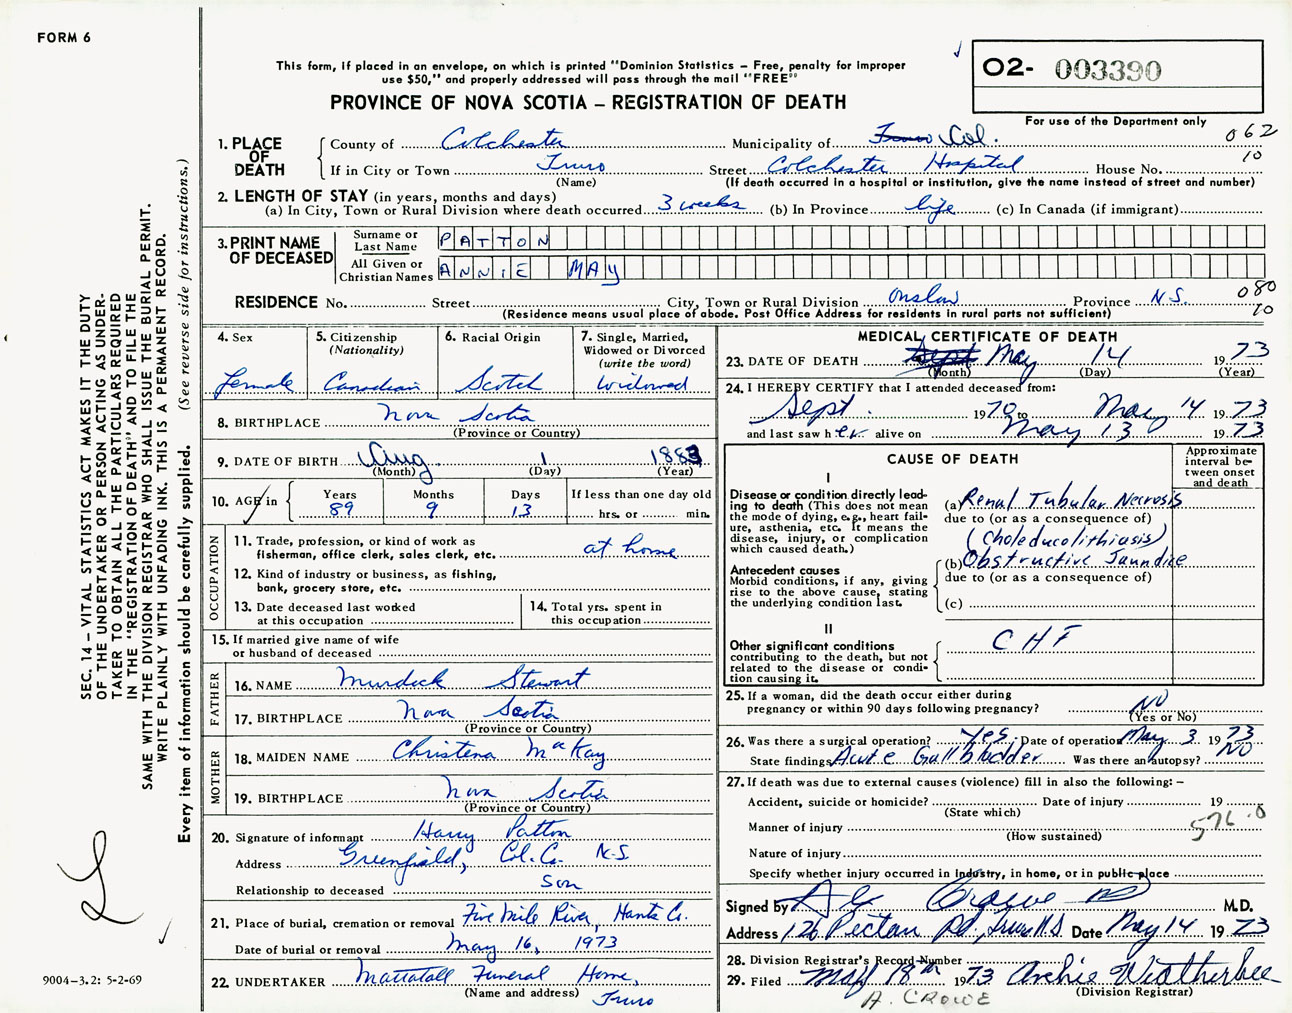 FORM 6
This form, if placed in an envelope, on which is printed "Dominion Statistics – Free, penalty for improper
use $50," and properly addressed will pass through the mail "FREE"
PROVINCE OF NOVA SCOTIA – REGISTRATION OF DEATH
O2- 003390
For use of the Department only
062
10
1. PLACE OF DEATH
County of Colchester Municipality of Truro Col.
If in City or Town Truro Street Colchester Hospital House No.
(Name) (If death occurred in a hospital or institution, give the name instead of street and number)
2. LENGTH OF STAY (in years, months and days)
(a) In City, Town or Rural Division where death occurred 3 weeks (b) In Province life (c) In Canada (if immigrant)
3. PRINT NAME OF DECEASED
Surname or Last Name PATTON
All Given or Christian Names ANNIE MAY
RESIDENCE No. Street City, Town or Rural Division Onslow Province N.S.
080
10
(Residence means usual place of abode. Post Office Address for residents in rural parts not sufficient)
4. Sex
Female
5. Citizenship
(Nationality)
Canadian
6. Racial Origin
Scotch
7. Single, Married,
Widowed or Divorced
(write the word)
Widowed
8. BIRTHPLACE Nova Scotia
(Province or Country)
9. DATE OF BIRTH Aug. 1 1883
(Month) (Day) (Year)
10. AGE in
Years Months Days If less than one day old
89 9 13 hrs. or min.
OCCUPATION
11. Trade, profession, or kind of work as
fisherman, office clerk, sales clerk, etc. at home
12. Kind of industry or business, as fishing,
bank, grocery store, etc.
13. Date deceased last worked
at this occupation
14. Total yrs. spent in
this occupation
15. If married give name of wife
or husband of deceased
FATHER
16. NAME Murdock Stewart
17. BIRTHPLACE Nova Scotia
(Province or Country)
MOTHER
18. MAIDEN NAME Christena MacKay
19. BIRTHPLACE Nova Scotia
(Province or Country)
20. Signature of informant Harry Patton
Address Greenfield, Col. Co. N.S.
Relationship to deceased Son
21. Place of burial, cremation or removal Five Mile River, Hants Co.
Date of burial or removal May 16, 1973
22. UNDERTAKER Mattatall Funeral Home,
(Name and address) Truro
MEDICAL CERTIFICATE OF DEATH
23. DATE OF DEATH Sept May 14 1973
(Month) (Day) (Year)
24. I HEREBY CERTIFY that I attended deceased from:
Sept. 1970 to May 14 1973
and last saw her alive on May 13 1973
CAUSE OF DEATH
Approximate
interval be-
tween onset
and death
I
Disease or condition directly lead-
ing to death (This does not
mean the mode of dying, e.g., heart fail-
ure, asthenia, etc. It means the
disease, injury, or complication
which caused death.)
(a) Renal Tubular Necrosis
due to (or as a consequence of)
(Choleducolithiasis)
(b) Obstructive Jaundice
due to (or as a consequence of)
(c)
Antecedent causes
Morbid conditions, if any, giving
rise to the above cause, stating
the underlying condition last.
II
Other significant conditions
contributing to the death, but not
related to the disease or condi-
tion causing it.
CHF
25. If a woman, did the death occur either during
pregnancy or within 90 days following pregnancy? NO
(Yes or No)
26. Was there a surgical operation? Yes. Date of operation May 3 1973
State findings Acute Gallbladder Was there an autopsy? NO
27. If death was due to external causes (violence) fill in also the following: –
Accident, suicide or homicide? Date of injury 19
(State which)
Manner of injury
(How sustained)
576.0
Nature of injury
Specify whether injury occurred in industry, in home, or in public place
Signed by A G Crowe MD M.D.
Address 126 Pictou Rd, Truro N.S Date May 14 1973
28. Division Registrar's Record Number
29. Filed May 18th 1973 Archie Weatherbee
(Division Registrar)
A. CROWE
SEC. 14 – VITAL STATISTICS ACT MAKES IT THE DUTY
OF THE UNDERTAKER OR PERSON ACTING AS UNDER-
TAKER TO OBTAIN ALL THE PARTICULARS REQUIRED
IN THE "REGISTRATION OF DEATH" AND TO FILE THE
SAME WITH THE DIVISION REGISTRAR WHO SHALL ISSUE THE BURIAL PERMIT.
WRITE PLAINLY WITH UNFADING INK. THIS IS A PERMANENT RECORD.
Every item of information should be carefully supplied. (See reverse side for instructions.)
9004–3.2: 5-2-69